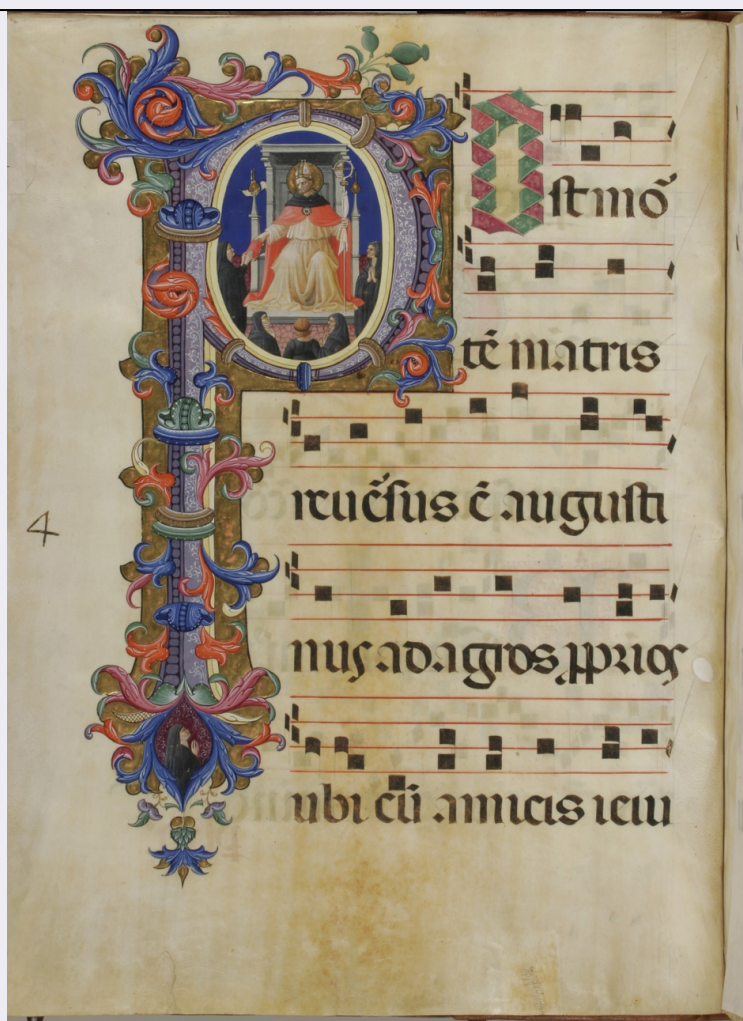 POst mõ
tẽ matris
reuẽsus ẽ augusti
4
nus ad agros ꝓprios
ubi cũ amicis ieiu